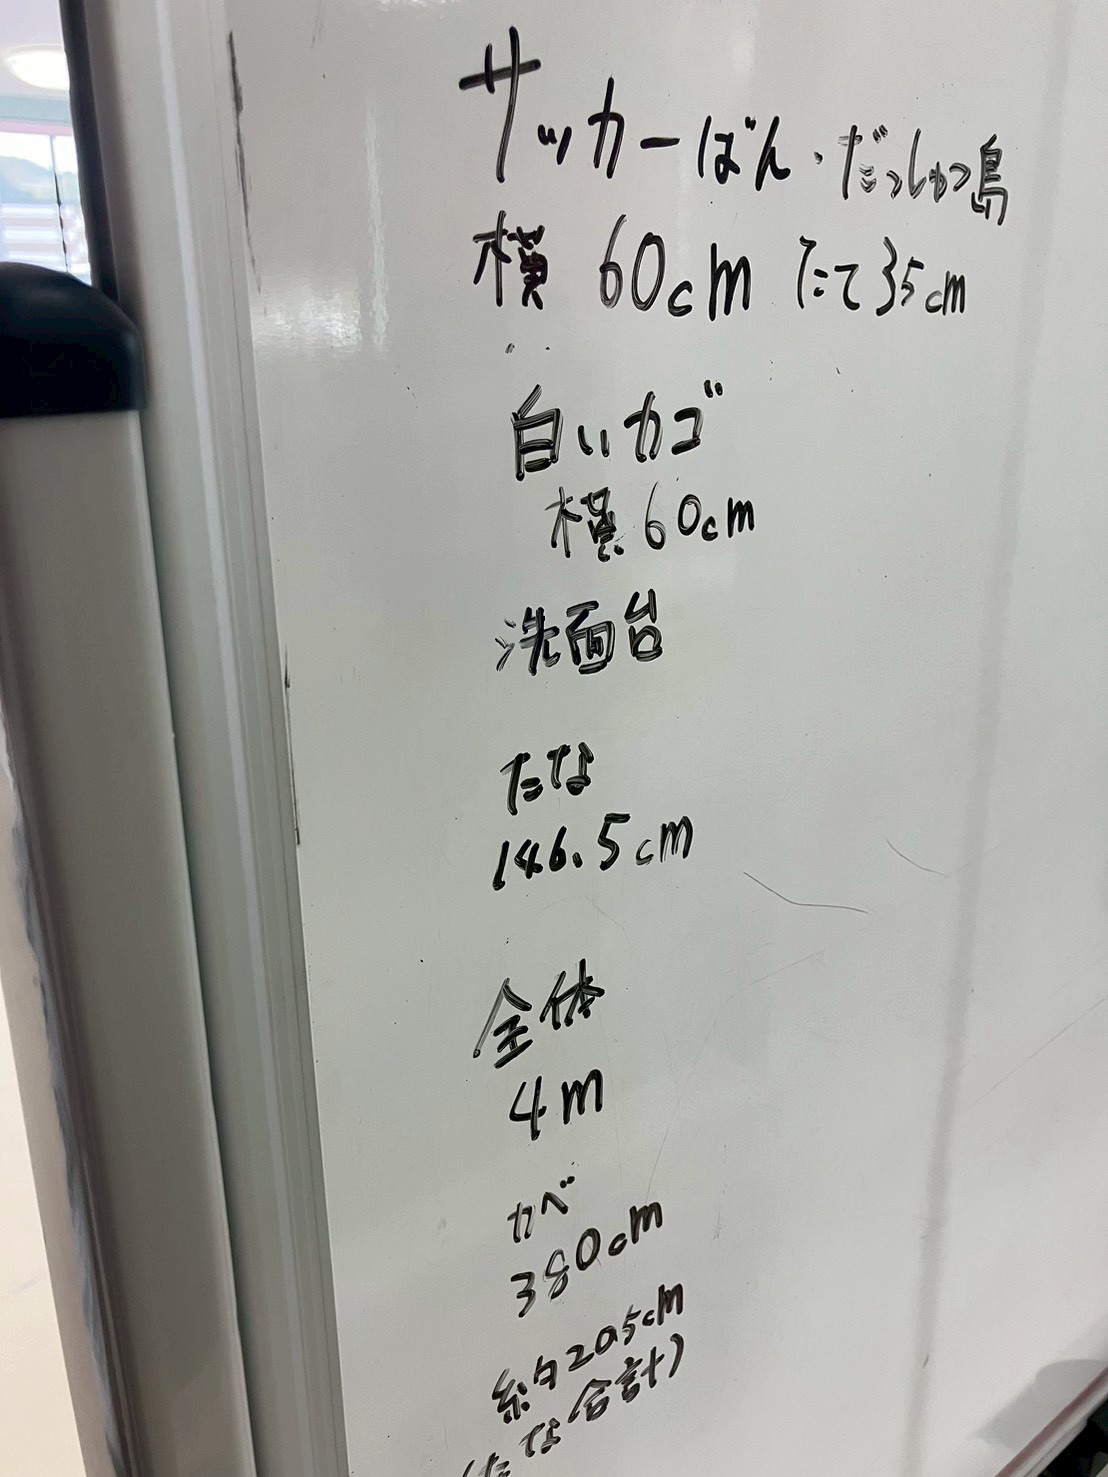 サッカーばん・だっしゅつ島
横 60cm たて35cm
白いカゴ
横60cm
洗面台
たな
146.5cm
全体
4m
カベ
380cm
約205cm
(たな合計)